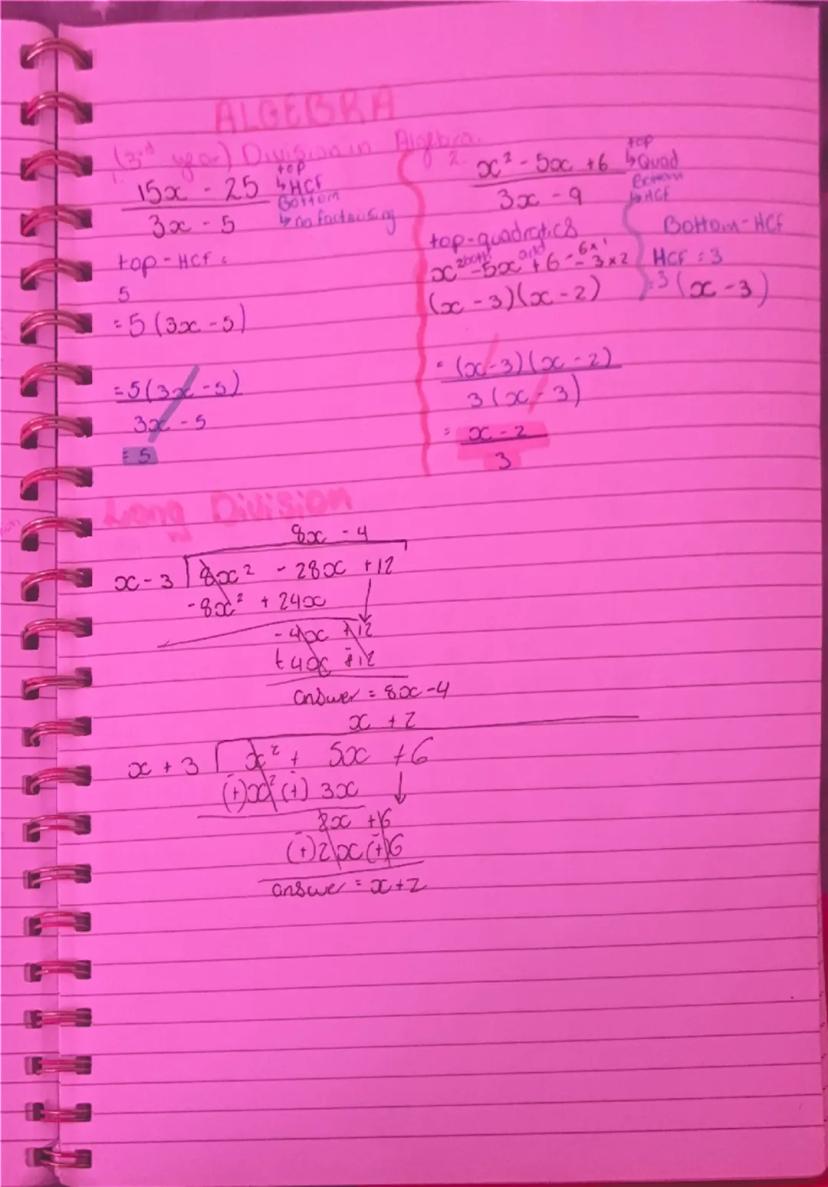 ALGEBRA
(3rd year) Division in Algebra.
1.
15x - 25
3x - 5
top
↳ HCF
Bottom
↳ no factorising
top - HCF =
5
= 5(3x - 5)
= 5(3x - 5)
3x - 5
= 5
2.
x² - 5x + 6
3x - 9
top
↳ Quad
Bottom
↳ HCF
top - quadratics
x² - 5x + 6 = -3 x 2
6 x 1
(x - 3)(x - 2)
Bottom - HCF
HCF = 3
= 3(x - 3)
= (x - 3)(x - 2)
3(x - 3)
= x - 2
3
Long Division
8x - 4
x - 3 8x² - 28x + 12
- 8x² + 24x
- 4x + 12
+ 4x + 12
answer = 8x - 4
x + 2
x + 3 x² + 5x + 6
(+)x² (+) 3x
2x + 6
(+)2x(+)6
answer = x + 2